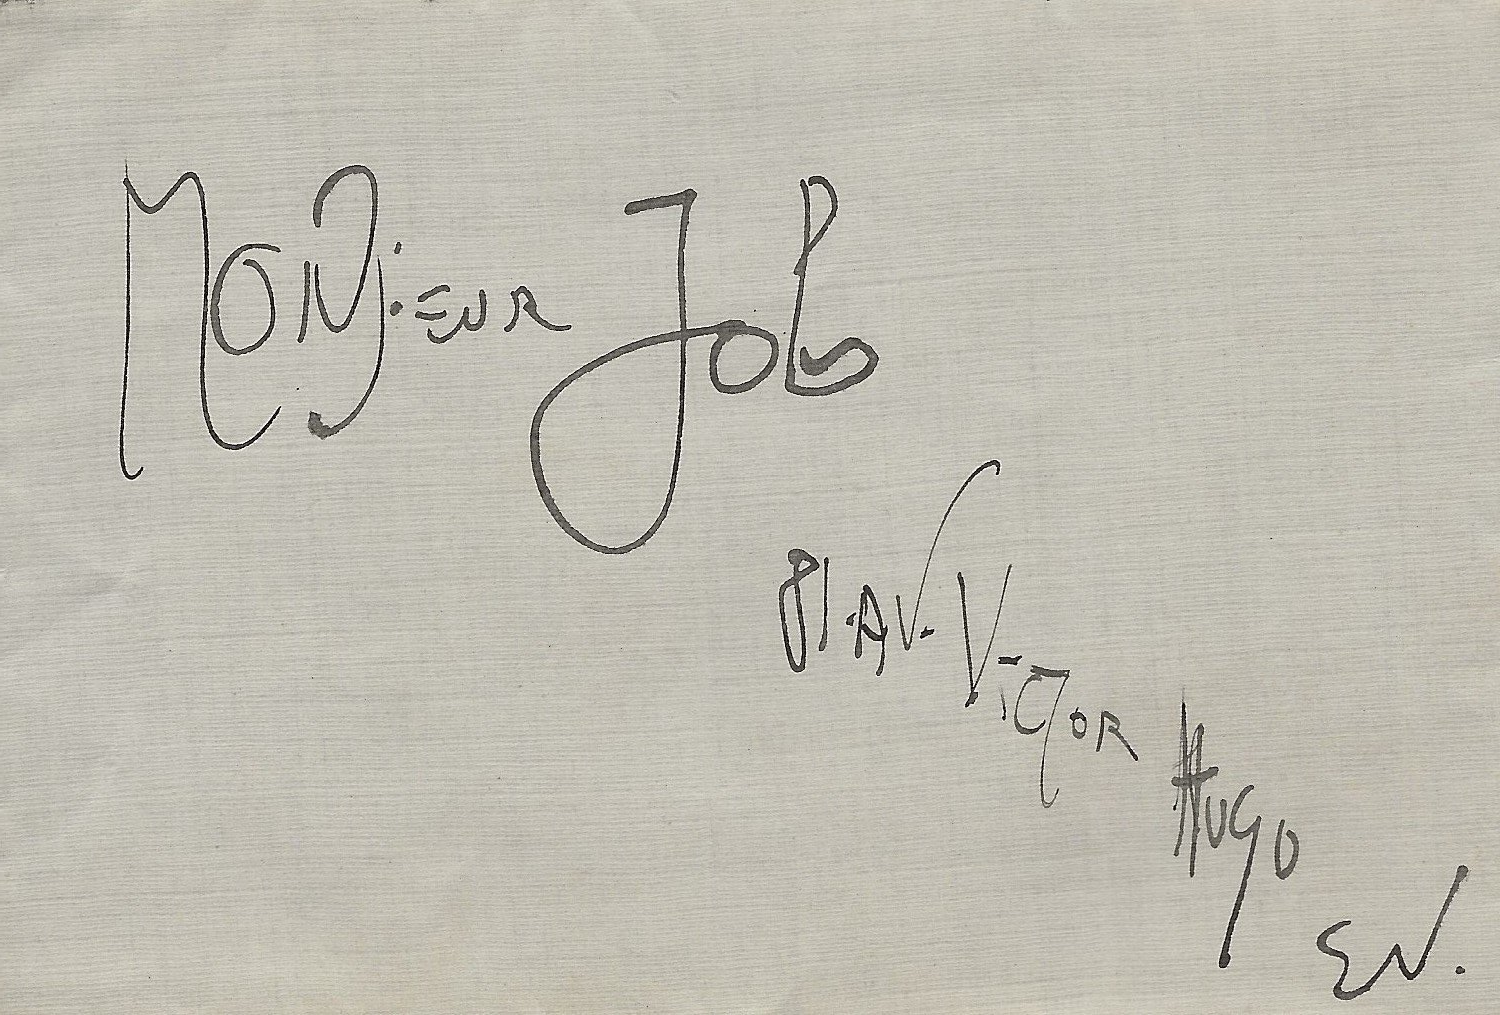 Monsieur Job
81. Av. Victor Hugo
EV.